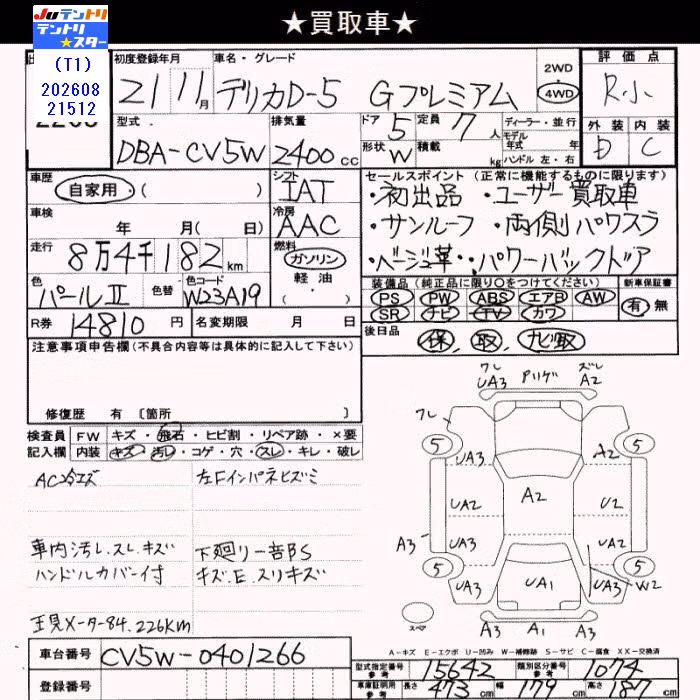 ★買取車★
Juテントリ
テントリ★スター
(T1)
202608
21512
初度登録年月
21年11月
車名・グレード
デリカD-5 Gプレミアム
2WD
4WD
評価点
R小
型式
DBA-CV5W
排気量
2400cc
ドア 5
定員 7人
形状 W
積載 kg
ディーラー・並行
モデル年式 年式
ハンドル 左・右
外装 内装
D C
車歴
自家用・( )
シフト
IAT
セールスポイント(正常に機能するものに限ります)
・初出品 ・ユーザー買取車
・サンルーフ ・両側パワスラ
・ベージュ革・・パワーバックドア
車検
年 月( 日)
冷房
AAC
走行
8万4千182km
燃料
ガソリン
軽油
・( )
色
パールⅡ
色替
色コード
W23A19
装備品(純正品に限り○をつけてください)
PS PW ABS エアB AW
SR ナビ TV カワ
新車保証書
有・無
R券 14810円
名変期限 月 日
後日品
保, 取, ナビ取
注意事項申告欄(不具合内容等は具体的に記入して下さい)
修復歴 有 〔箇所 〕
検査員記入欄
FW キズ・飛石・ヒビ割・リペア跡・×要
内装 キズ・汚レ・コゲ・穴・スレ・キレ・破レ
AC冷エズ
左Fインパネヒズミ
車内汚レ.スレ.キズ
ハンドルカバー付
下廻リ一部BS
キズ.E.スリキズ
正見メーター84.226KM
フレ
UA3
ズレ
A2
フレ
5
5
UA3
A2
UA2
A2
U2
A3
UA3
UA2
5
5
UA3
UA1
UA3
W2
スペア
A3
A1
A3
A-キズ E-エクボ U-凹み W-補修跡 S-サビ C-腐食 XX-交換済
車台番号 CV5W-0401266
登録番号
型式指定番号 参考 15642
類別区分番号 参考 1074
車庫証明用 参考 長さ 473cm 幅 179cm 高さ 187cm